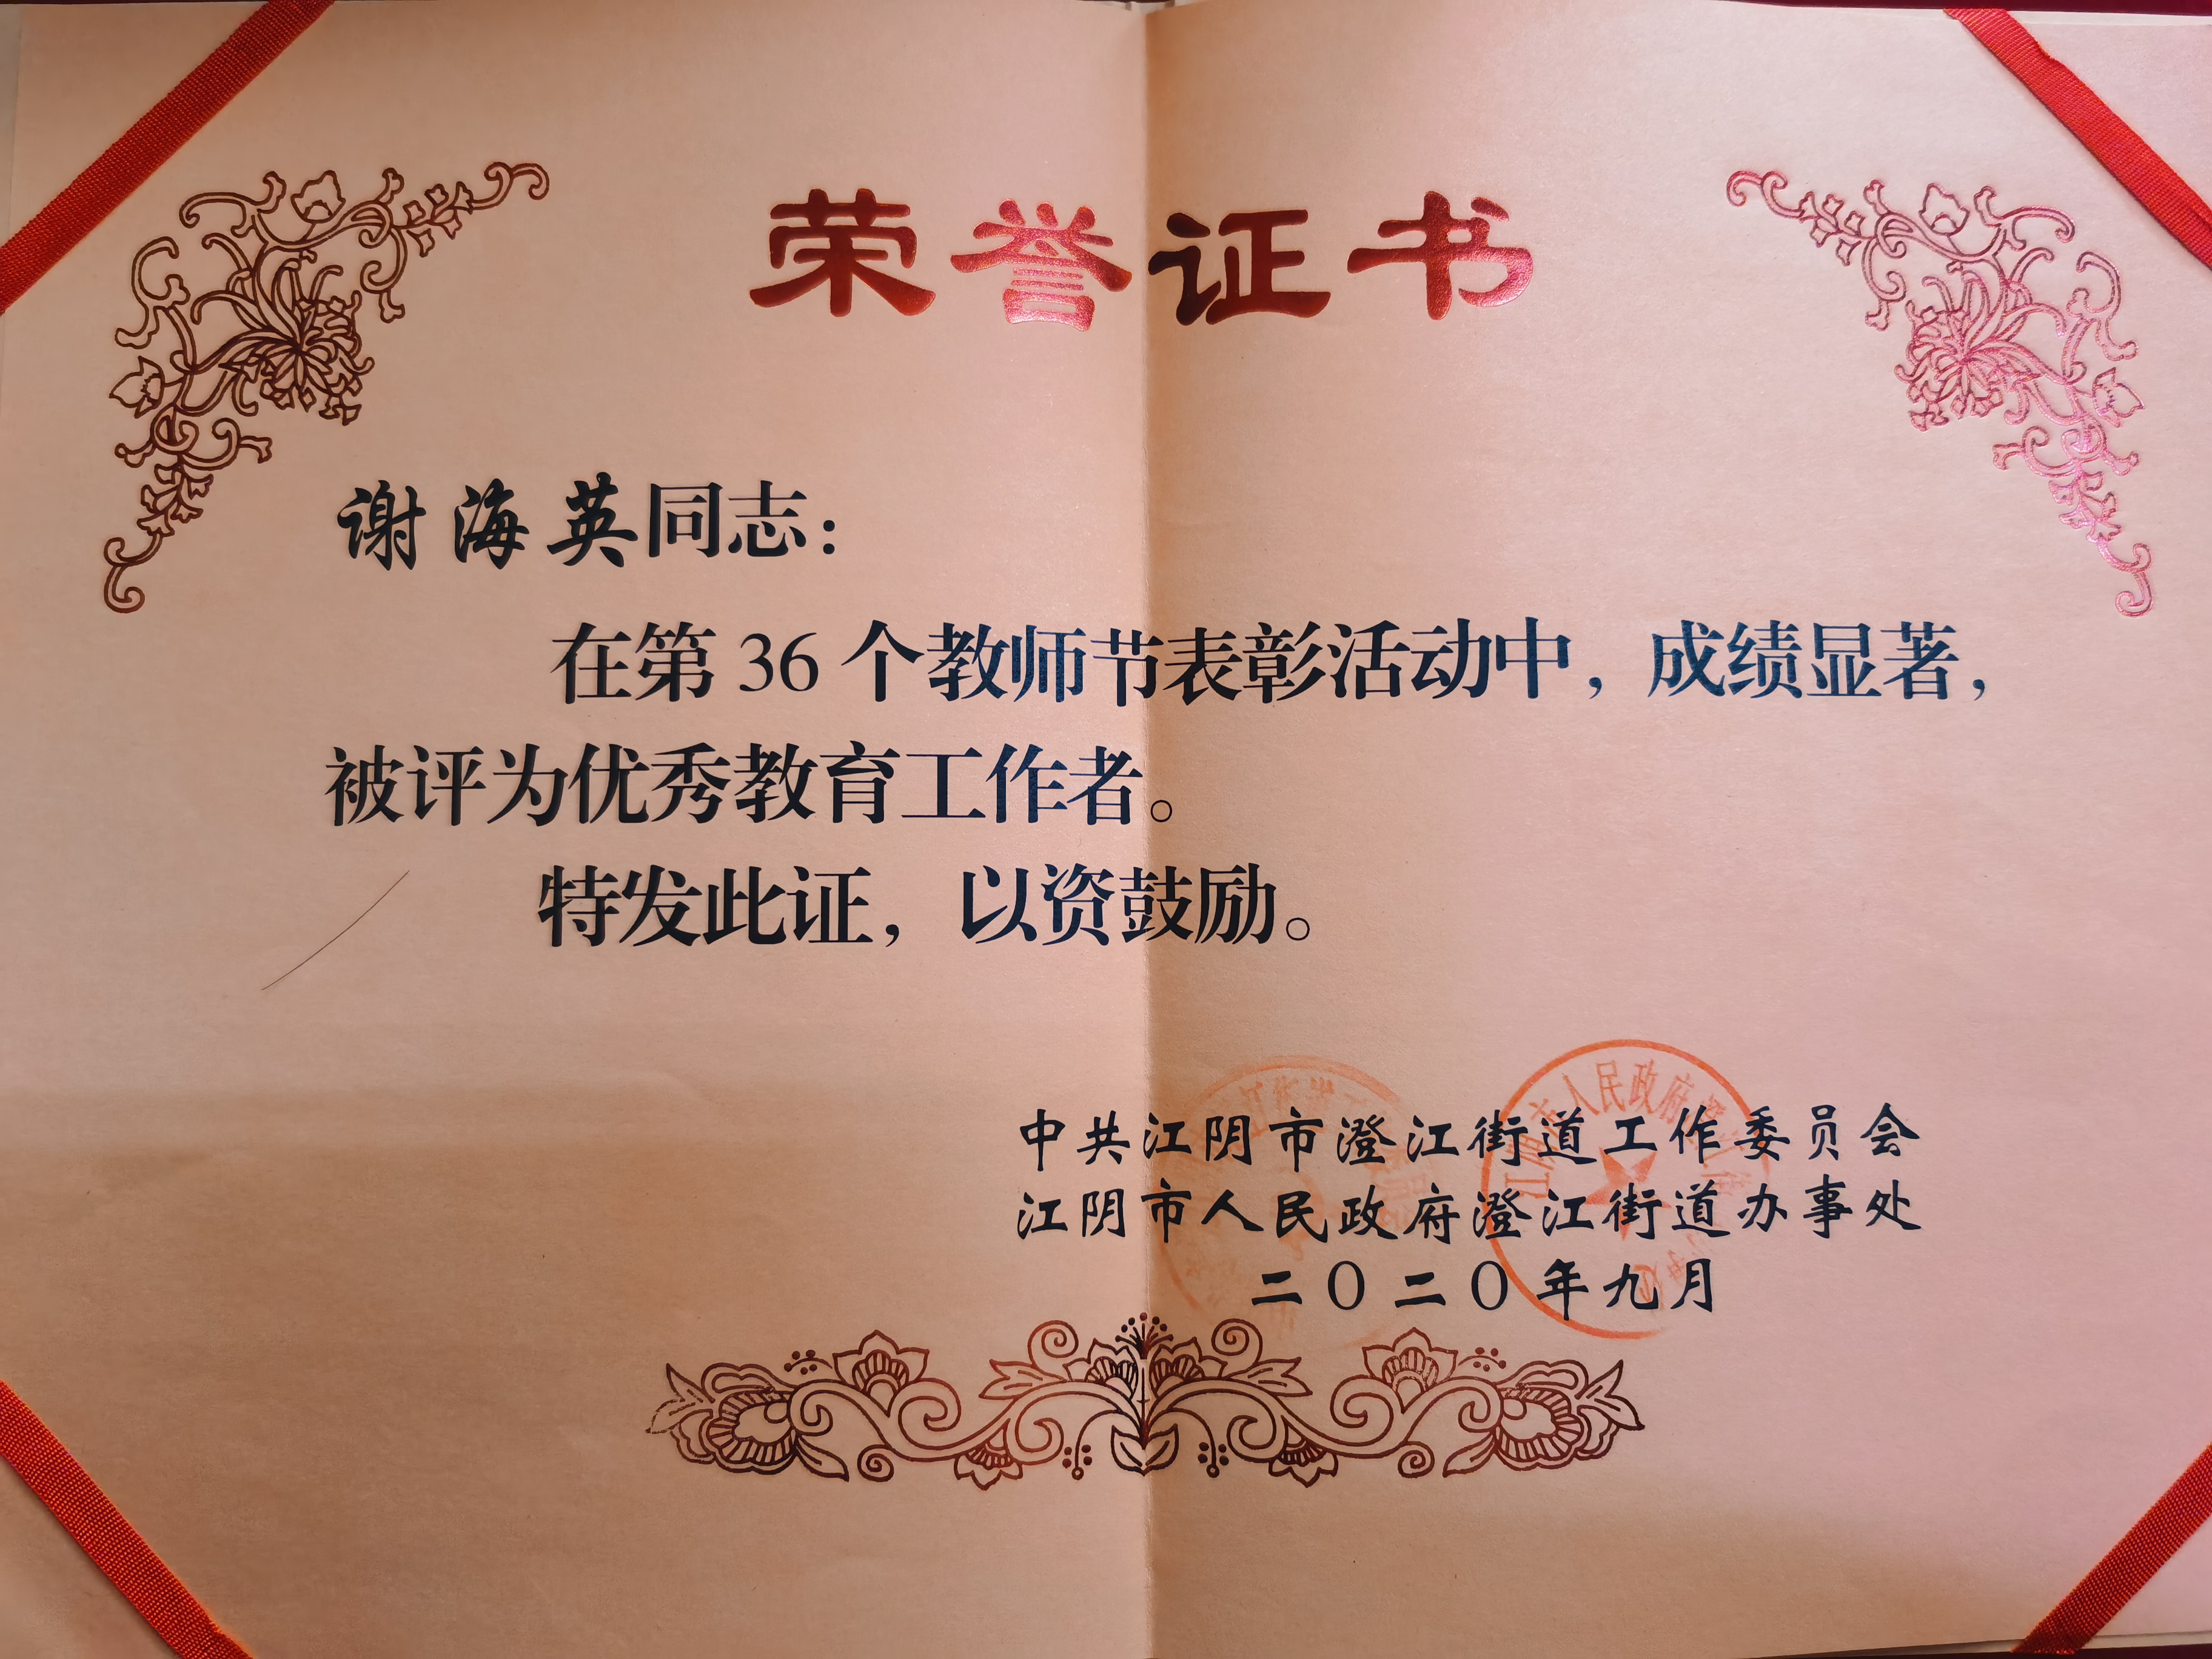 荣誉证书
谢海英同志：
在第36个教师节表彰活动中，成绩显著，
被评为优秀教育工作者。
特发此证，以资鼓励。
中共江阴市澄江街道工作委员会
江阴市人民政府澄江街道办事处
二〇二〇年九月